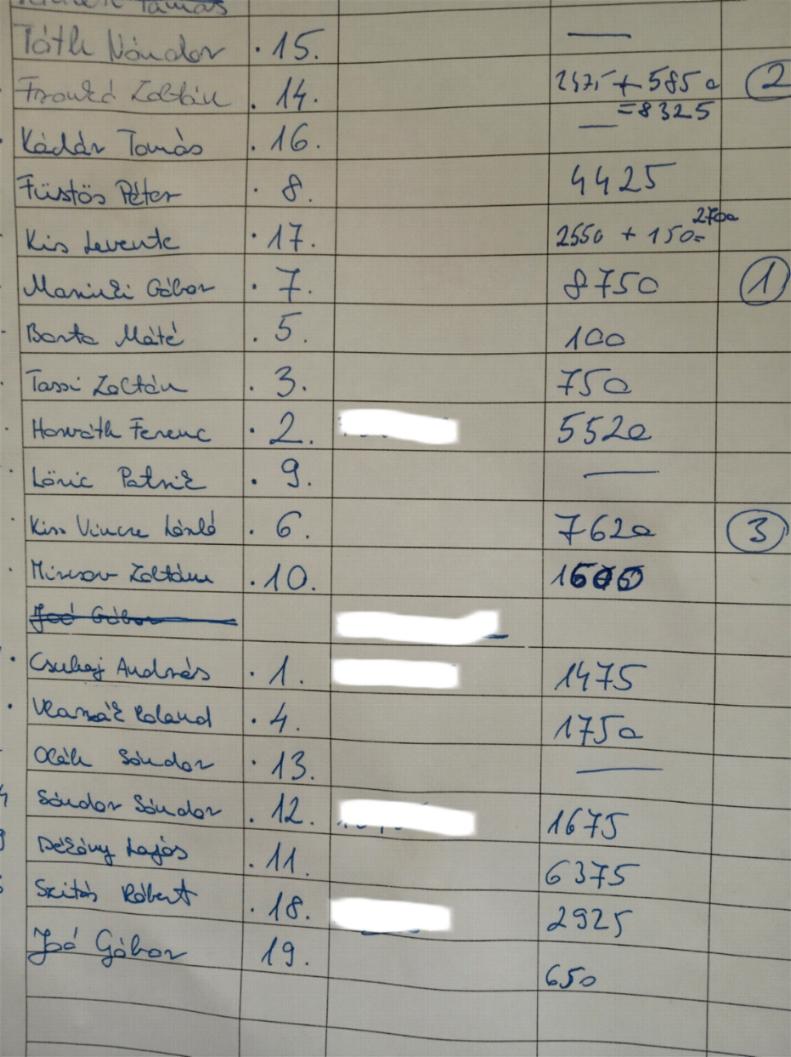 Tamás
Tóth Nándor . 15. —
Frankó Zoltán . 14. 2475 + 5850 2
=8325
Kádár Tamás . 16. —
Füstös Péter . 8. 4425
Kis Levente . 17. 2550 + 150= 2700
Gábor . 7. 8750 1
Barta Máté . 5. 100
Tassi Zoltán . 3. 750
Horváth Ferenc . 2. 5520
Lőric Patrik . 9. —
Kiss Vincze László . 6. 7620 3
Zoltán . 10. 1600
Joó Gábor
Csuhaj András . 1. 1475
Roland . 4. 1750
Oláh Sándor . 13. —
Sándor Sándor . 12. 1675
Lajos . 11. 6375
Szitás Róbert . 18. 2925
Joó Gábor 19. 650